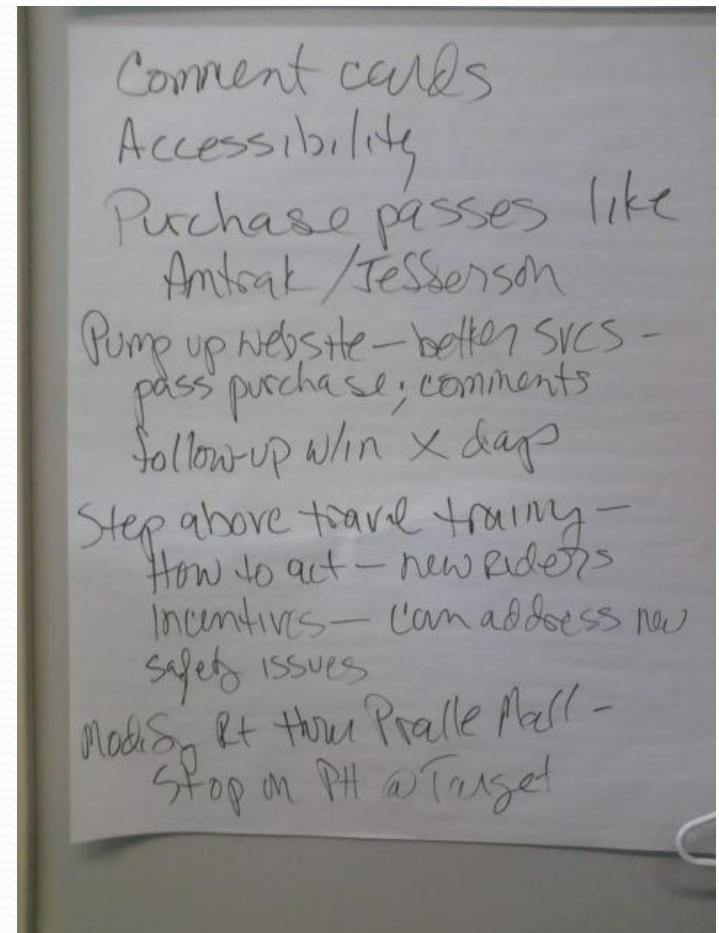 Comment cards
Accessibility
Purchase passes like
Amtrak / Jefferson
Pump up website – better svcs –
pass purchase; comments
follow-up w/in x days
Step above travel training –
How to act – new riders
Incentives – can address new
safety issues
Modify Rt thru Mall –
Stop on PH @ Target